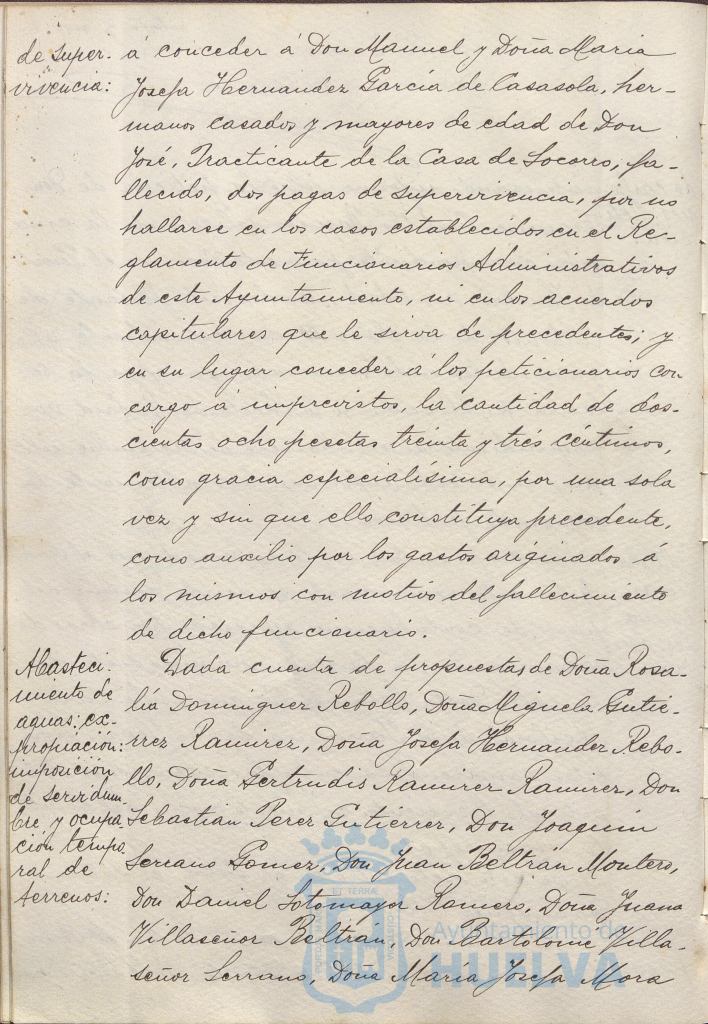 de super-
vivencia:
á conceder á Don Manuel y Doña Maria
Josefa Hernandez García de Casasola, her-
manos casados y mayores de edad de Don
José, Practicante de la Casa de Socorro, fa-
llecido, dos pagas de supervivencia, por no
hallarse en los casos establecidos en el Re-
glamento de Funcionarios Administrativos
de este Ayuntamiento, ni en los acuerdos
capitulares que le sirva de precedentes; y
en su lugar conceder á los peticionarios con
cargo á imprevistos, la cantidad de dos-
cientas ocho pesetas treinta y tres céntimos,
como gracia especialísima, por una sola
vez y sin que ello constituya precedente,
como auxilio por los gastos originados á
los mismos con motivo del fallecimiento
de dicho funcionario.
Abasteci-
miento de
aguas: ex-
propiación:
imposición
de servidum
bre y ocupa
ción tempo
ral de
terrenos:
Dada cuenta de propuestas de Doña Rosa-
lía Dominguez Rebollo, Doña Miguela Gutie-
rrez Ramirez, Doña Josefa Hernandez Rebo-
llo, Doña Gertrudis Ramirez Ramirez, Don
Sebastian Perez Gutierrez, Don Joaquin
Serrano Gomez, Don Juan Beltrán Montero,
Don Daniel Sotomayor Romero, Doña Juana
Villaseñor Beltrán, Don Bartolome Villa-
señor Serrano, Doña María Josefa Mora
Ayuntamiento de
HUELVA